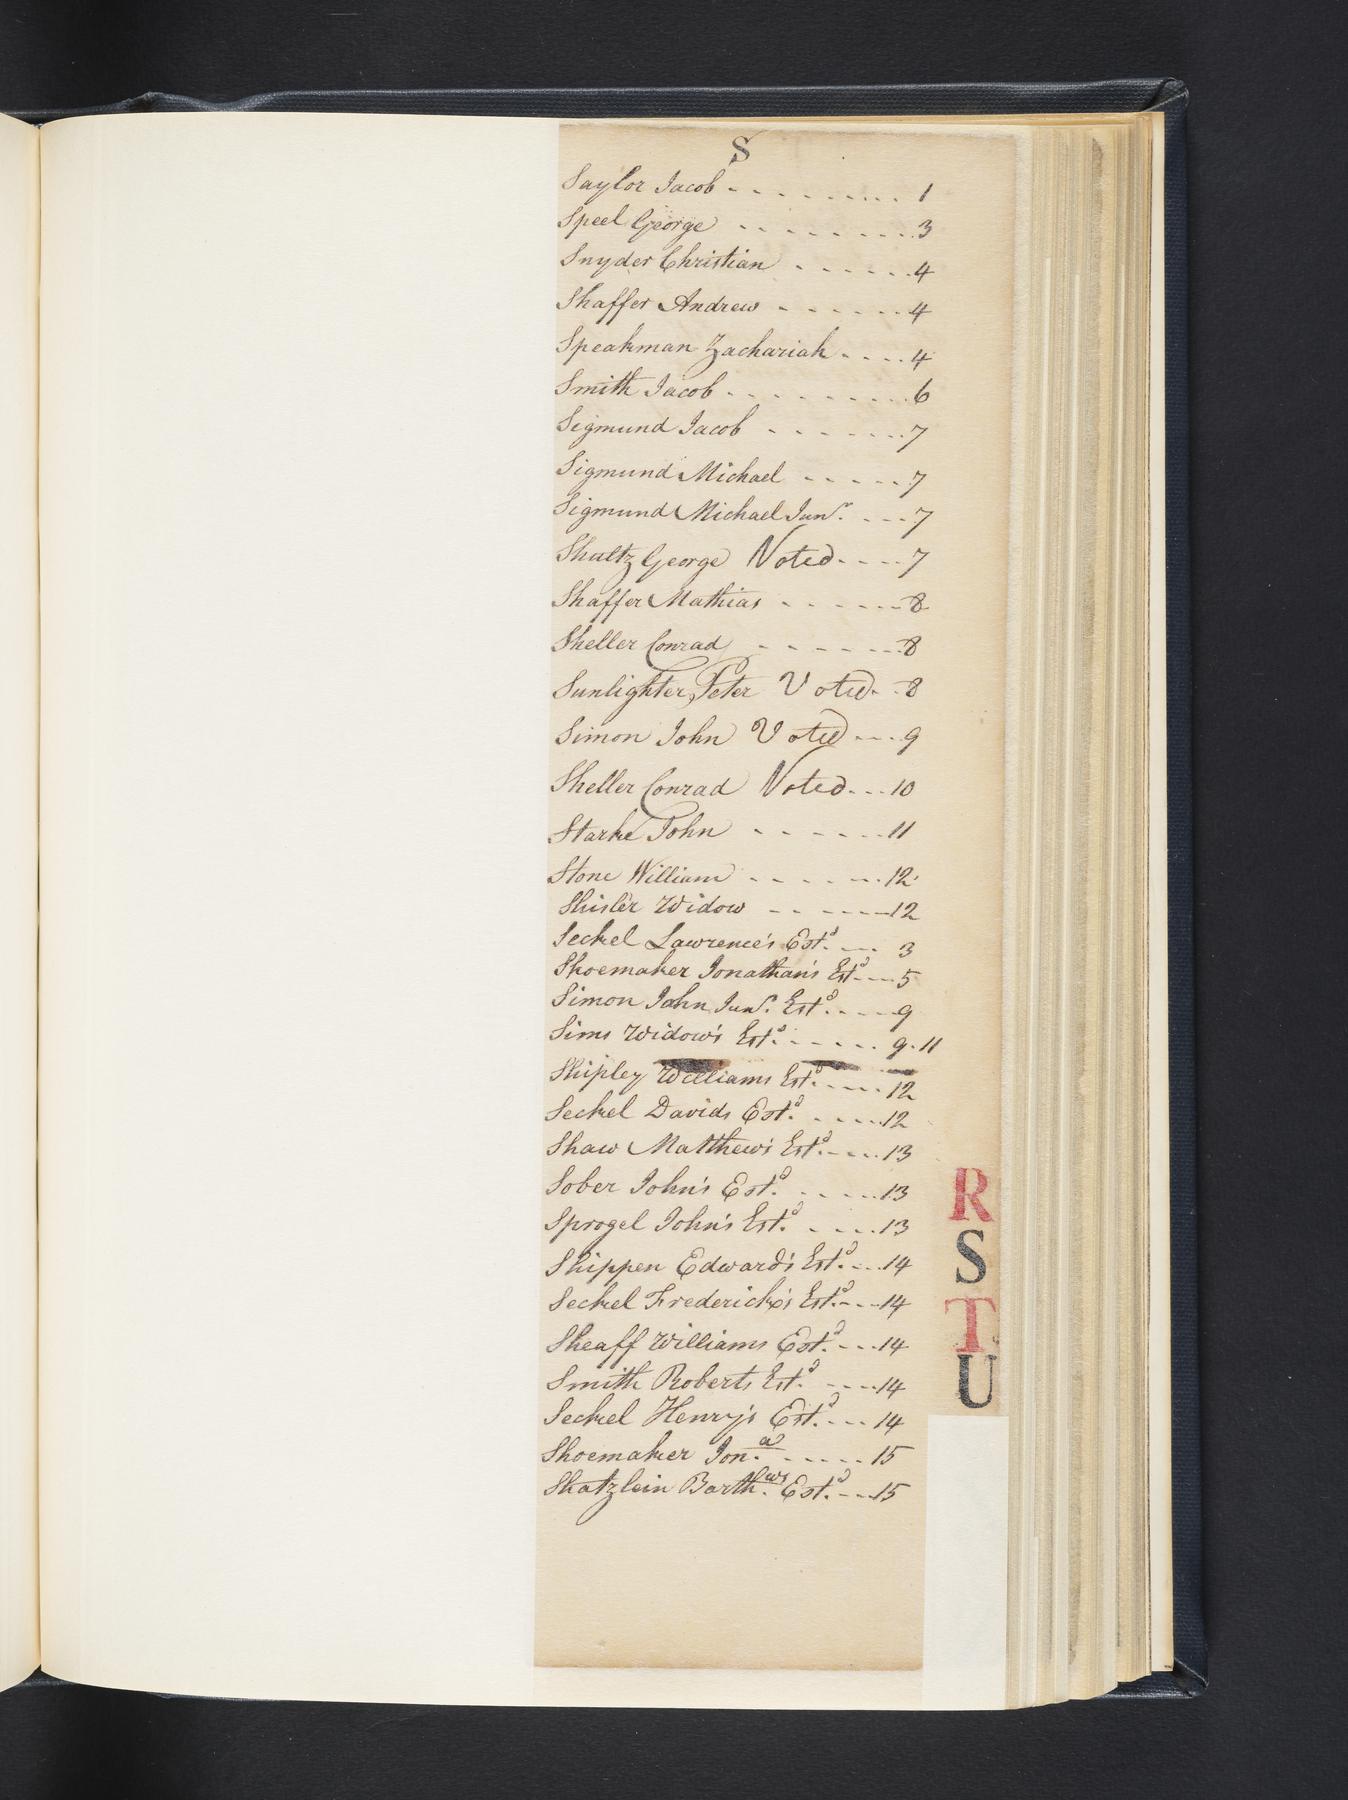 S
Saylor Jacob - - - - - - - - - 1
Speel George - - - - - - - - 3
Snyder Christian - - - - - - 4
Shaffer Andrew - - - - - - - 4
Speakman Zachariah - - - - 4
Smith Jacob - - - - - - - - - 6
Sigmund Jacob - - - - - - - 7
Sigmund Michael - - - - - 7
Sigmund Michael Junr. - - - 7
Shultz George Voted - - - - 7
Shaffer Mathias - - - - - - 8
Sheller Conrad - - - - - - - 8
Sunlighter, Peter Voted - - 8
Simon John Voted - - - 9
Sheller Conrad Voted - - - 10
Starke John - - - - - - - 11
Stone William - - - - - - 12
Shisler Widow - - - - - - 12
Seckel Lawrence's Estd. - - - 3
Shoemaker Jonathan's Estd. - - - 5
Simon John Junr. Estd. - - - - 9
Sims Widow's Estd. - - - - - - 9.11
Shipley Williams Estd. - - - - 12
Seckel Davids Estd. - - - - - 12
Shaw Matthew's Estd. - - - - 13
Sober John's Estd. - - - - - 13
Sprogel John's Estd. - - - - 13
Shippen Edward's Estd. - - - 14
Seckel Frederick's Estd. - - - 14
Sheaff Williams Estd. - - - 14
Smith Roberts Estd. - - - - 14
Seckel Henry's Estd. - - - 14
Shoemaker Jona. - - - - - 15
Shatzlein Barthws. Estd. - - - 15
R
S
T
U